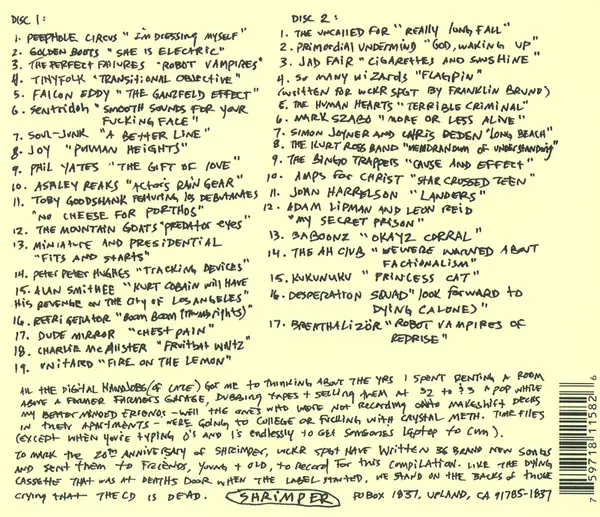 DISC 1:
1. PEEPHOLE CIRCUS "I'm DRESSING MYSELF"
2. GOLDEN BOOTS "SHE IS ELECTRIC"
3. THE PERFECT FAILURES "ROBOT VAMPIRES"
4. TINYFOLK "TRANSITIONAL OBJECTIVE"
5. FALCON EDDY "THE GANZFELD EFFECT"
6. SENTRIDOH "SMOOTH SOUNDS FOR YOUR
FUCKING FACE"
7. SOUL-JUNK "A BETTER LINE"
8. JOY "PUHUAN HEIGHTS"
9. PHIL YATES "THE GIFT OF LOVE"
10. ASHLEY REAKS "ACTOR'S RAIN GEAR"
11. TOBY GOODSHANK FEATURING LOS DEBUTANTES
"NO CHEESE FOR PORTHOS"
12. THE MOUNTAIN GOATS "PREDATOR EYES"
13. MINIATURE AND PRESIDENTIAL
"FITS AND STARTS"
14. PETER PETER HUGHES "TRACKING DEVICES"
15. ALAN SMITHEE "KURT COBAIN WILL HAVE
HIS REVENGE ON THE CITY OF LOS ANGELES"
16. REFRIGERATOR "BOOM BOOM (THUMB RIGHTS)"
17. DUDE MIRROR "CHEST PAIN"
18. CHARLIE McALISTER "FRUITBAT WALTZ"
19. UNITARD "FIRE ON THE LEMON"
DISC 2:
1. THE UNCALLED FOR "REALLY LONG FALL"
2. PRIMORDIAL UNDERMIND "GOD, WAKING UP"
3. JAD FAIR "CIGARETTES AND SUNSHINE"
4. SO MANY WIZARDS "FLAGPIN"
(WRITTEN FOR WCKR SPGT BY FRANKLIN BRUNO)
5. THE HUMAN HEARTS "TERRIBLE CRIMINAL"
6. MARK SZABO "MORE OR LESS ALIVE"
7. SIMON JOYNER AND CHRIS DEDEN "LONG BEACH"
8. THE KURT ROSS BAND "MEMORANDUM OF UNDERSTANDING"
9. THE BINGO TRAPPERS "CAUSE AND EFFECT"
10. AMPS FOR CHRIST "STAR CROSSED TEEN"
11. JOHN HARRELSON "LANDERS"
12. ADAM LIPMAN AND LEON REID
"MY SECRET PRISON"
13. BABOONZ "OKAYZ CORRAL"
14. THE AH CLUB "WE WERE WARNED ABOUT
FACTIONALISM"
15. KUKUNUKU "PRINCESS CAT"
16. DESPERATION SQUAD "LOOK FORWARD TO
DYING (ALONE)"
17. BREATHALIZÖR "ROBOT VAMPIRES OF
REDRISE"
All THE DIGITAL HANDJOBS (OF LATE) GOT ME TO THINKING ABOUT THE YRS I SPENT RENTING A ROOM
ABOVE A FORMER FARMER'S GARAGE, DUBBING TAPES + SELLING THEM AT $2 TO $3 A POP WHILE
MY BETTER MINDED FRIENDS - WELL THE ONES WHO WERE NOT RECORDING ONTO MAKESHIFT DECKS
IN THEIR APARTMENTS - WERE GOING TO COLLEGE OR FUCKING WITH CRYSTAL METH. TIME FLIES
(EXCEPT WHEN YOU'RE TYPING 0'S AND 1'S ENDLESSLY TO GET SOMEONES LAPTOP TO CUM).
TO MARK THE 20TH ANNIVERSARY OF SHRIMPER, WCKR SPGT HAVE WRITTEN 36 BRAND NEW SONGS
AND SENT THEM TO FRIENDS, YOUNG + OLD, TO RECORD FOR THIS COMPILATION. LIKE THE DYING
CASSETTE THAT WAS AT DEATHS DOOR WHEN THE LABEL STARTED, WE STAND ON THE BACKS OF THOSE
CRYING THAT THE CD IS DEAD. SHRIMPER PO BOX 1837, UPLAND, CA 91785-1837
7 59718 11582 6